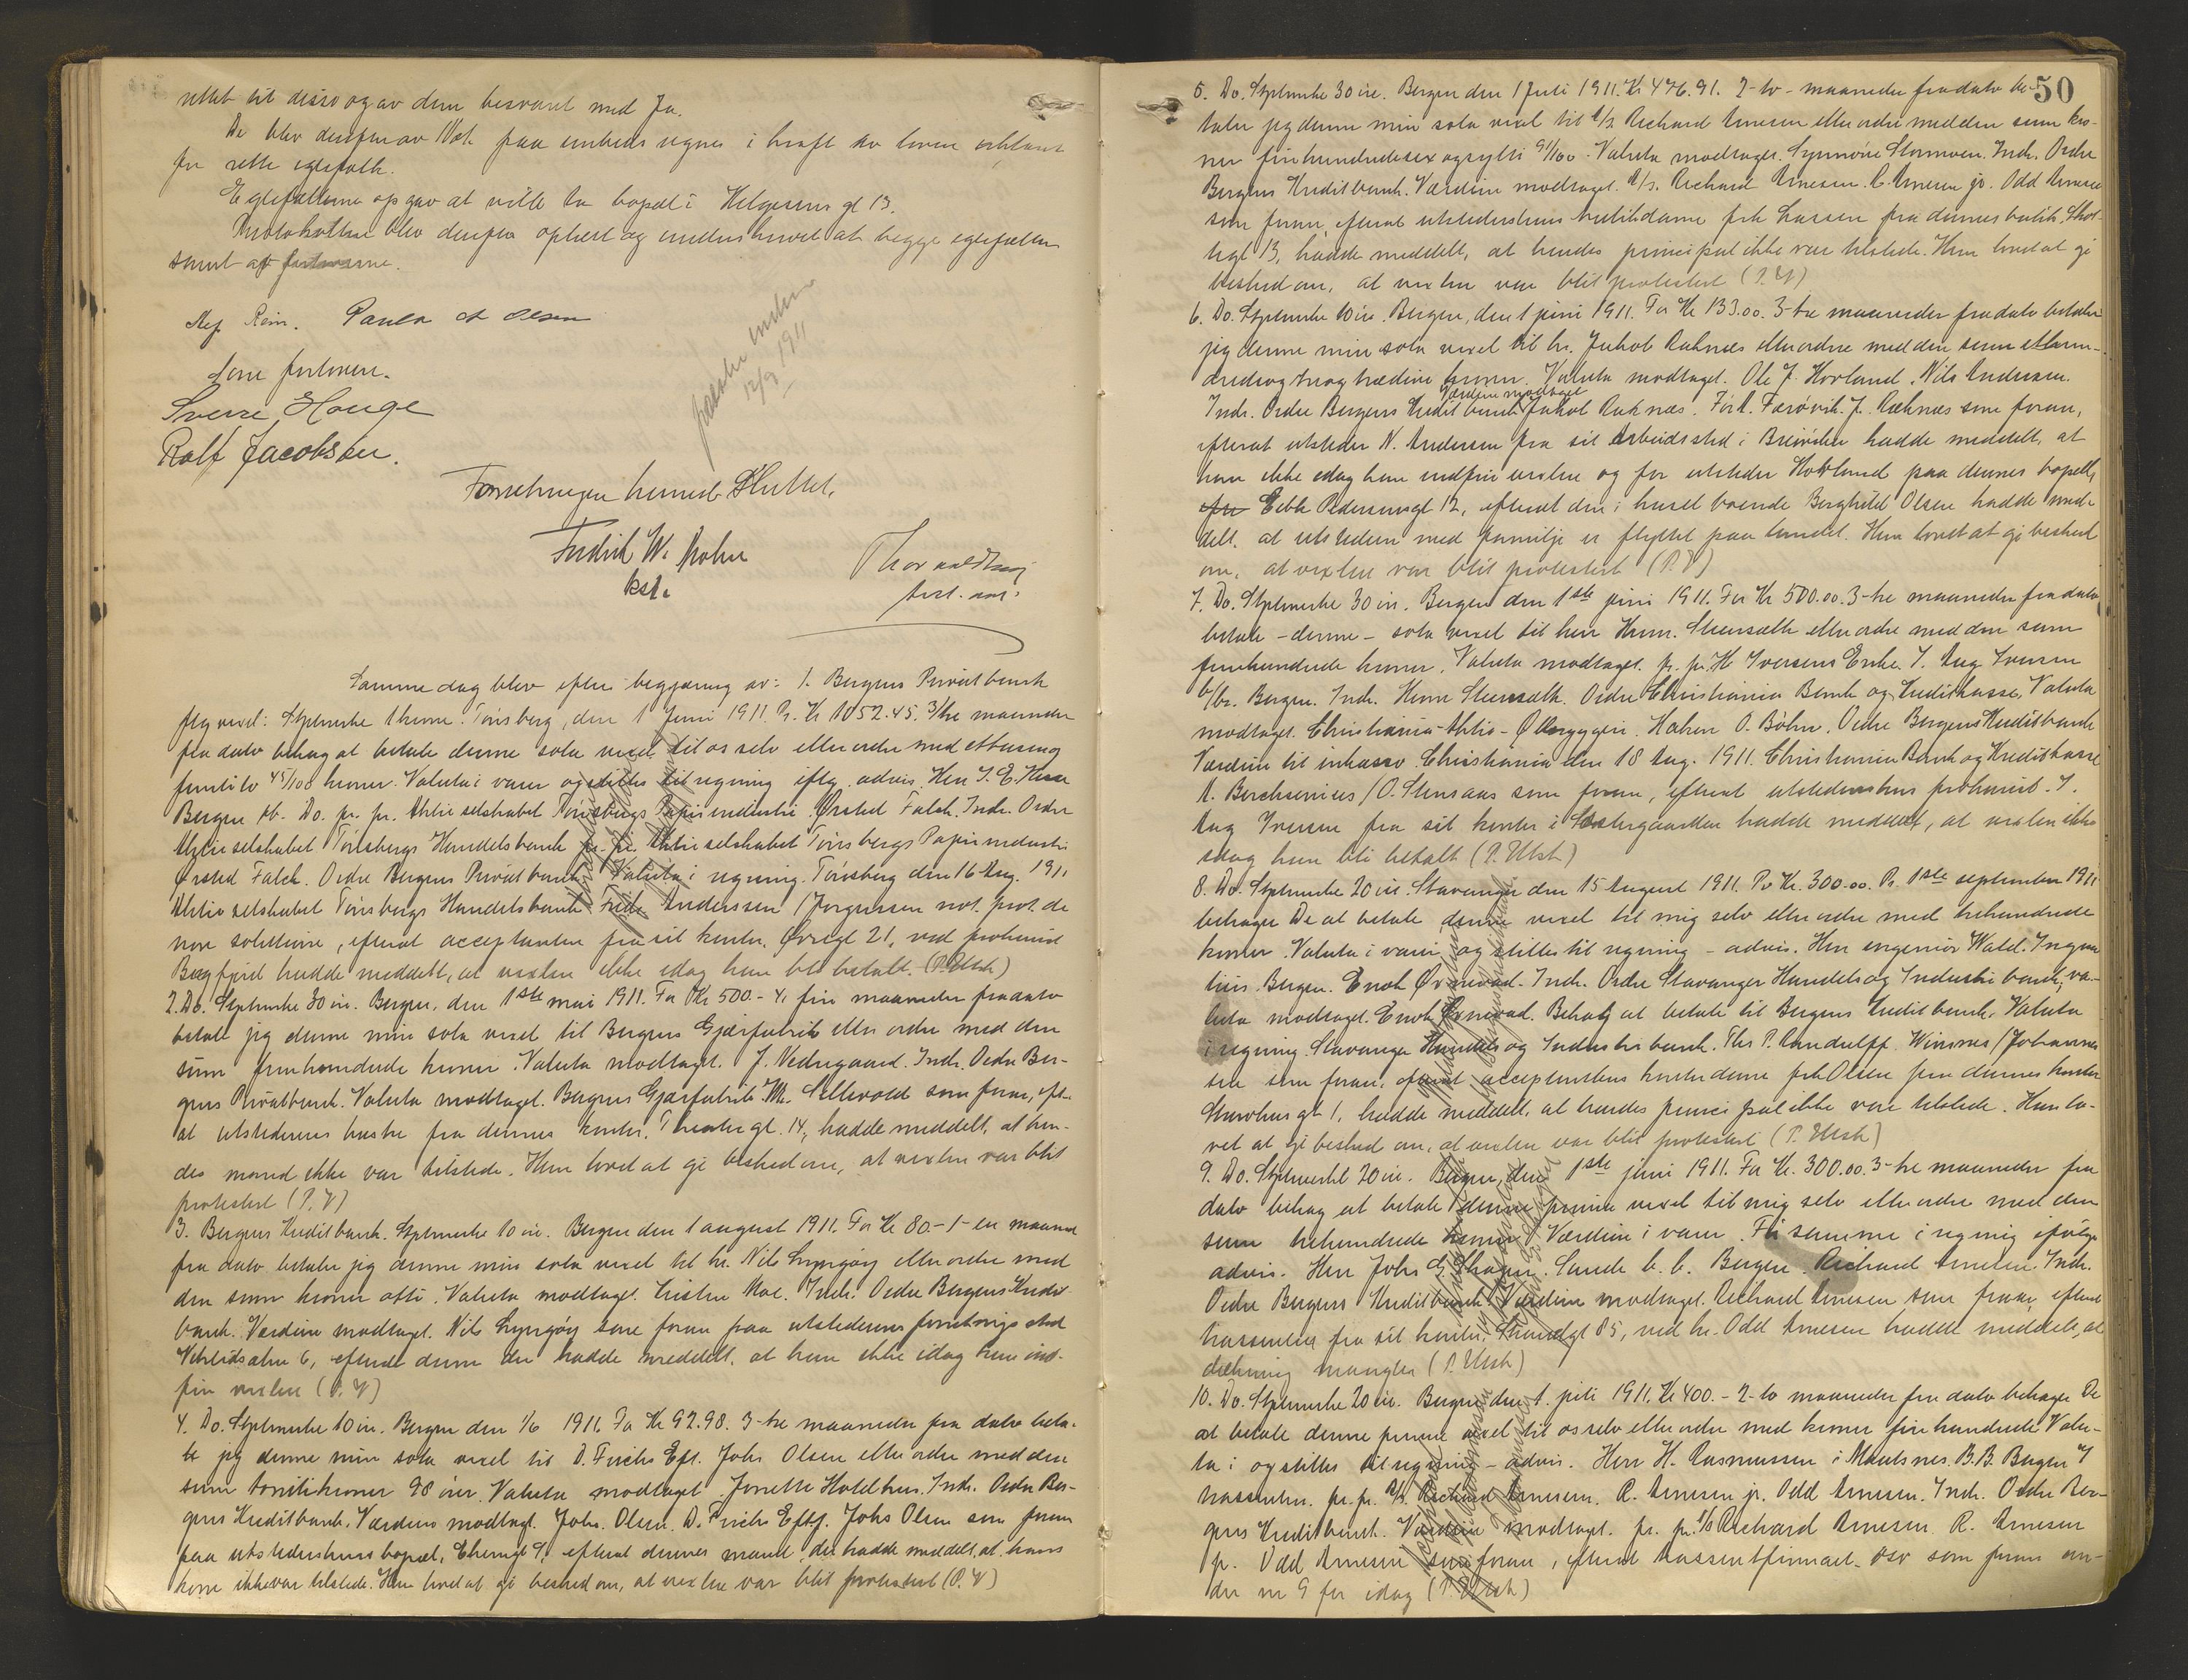 rettet til disse og av dem besvaret med Ja.
De blev derpaa av Not. paa embeds vegne i kraft av loven erklæret
for rette egtefolk.
Egtefællerne opgav at ville ta bopæl i Helgesens gt 13.
Protokollen blev derpaa oplæst og underskrevet av begge egtefæller
samt af forloverne.
Alf Rein. Paula Olsen
Som forlovere.
Sverre Hauge
Rolf Jacobsen.
12/9 1911
Forretningen hermed sluttet.
Fredrik W. Mohn
kst.
Samme dag blev efter begjæring av: 1. Bergens Privatbank
flg vexel: Stplmerke 1 krone. Tønsberg, den 1 Juni 1911. Pr. Kr 1052.45. 3/tre maaneder
fra dato behag at betale denne sola vexel til os selv eller ordre med ettusen og
femtito 45/100 kroner. Valuta i varer og stilles til regning iflg. advis. Herr
Bergen Do. pr. pr. Aktieselskabet Tønsbergs Papirindustri Ørsted Falck. Indr. Ordre
Aktieselskabet Tønsbergs Handelsbank pr. pr. Aktieselskabet Tønsbergs Papirindustri
Ørsted Falck. Ordre Bergens Privatbank Valuta i regning. Tønsberg den 16 Aug. 1911
Aktieselskabet Tønsbergs Handelsbank Anderssen / Jørgensen not. prot. de
non solutione, efterat acceptanten fra sit kontor, Øvregt 21, ved prokurist
hadde meddelt, at vexlen ikke idag kan bli betalt. (P. Utsk)
2. Do. Stplmerke 30 øre. Bergen, den 1ste mai 1911. For Kr 500.- 4, fire maaneder fra dato
betaler jeg denne min sola vexel til Bergens Gjærfabrik eller ordre med den
sum femhundrede kroner. Valuta modtaget. J. Vedregaard. Indr. Ordre Ber-
gens Privatbank. Valuta modtaget. Bergens Gjærfabrik. Sellevold som foran, eft-
at utstederens hustru fra dennes kontor, Theatergt. 14, hadde meddelt, at hen-
des mand ikke var tilstede. Hun lovet at gi besked om, at vexlen var blit
protestert (P. V)
3. Bergens Kreditbank. Stplmerke 10 øre. Bergen den 1 august 1911. For Kr 80.- 1- en maaned
fra dato betaler jeg denne min sola vexel til hr. Nils Lyngøy eller ordre med
den sum kroner otti. Valuta modtaget. Indr. Ordre Bergens Kredit-
bank. Værdien modtaget. Nils Lyngøy som foran paa utstederens forretningssted
6, efterat denne der hadde meddelt, at han ikke idag kan ind-
fri vexlen (P. V)
4. Do. Stplmerke 10 øre. Bergen den 1/6 1911. For Kr 92.98. 3- tre maaneder fra dato beta-
ler jeg denne min sola vexel til D. Friels Eft. Johs Olsen eller ordre med den
sum kroner 98 øre. Valuta modtaget. Indr. Ordre Ber-
gens Kreditbank. Værdien modtaget. Johs. Olsen. Johs Olsen som foran
paa utstederskens bopæl, efterat dennes mand, der hadde meddelt, at hans
kone ikke var tilstede. Han lovet at gi besked om, at vexlen var blit protestert (P. V)
50
5. Do. Stplmerke 30 øre. Bergen den 1 Juli 1911. Kr 476.91. 2- to - maaneder fra dato be-
taler jeg denne min sola vexel til A/S Richard Arnesen eller ordre med den sum kro-
ner firehundredesexogsytti 91/100. Valuta modtaget. Synnøve Stormoen. Indr. Ordre
Bergens Kreditbank. Værdien modtaget. A/S. Richard Arnesen. R. Arnesen jr. Odd Arnesen
som foran, efterat utstederskens butikdame frk Larsen fra dennes butik,
13, hadde meddelt, at hendes principal ikke var tilstede. Hun lovet at gi
besked om, at vexlen var blit protestert (P. V)
6. Do. Stplmerke 10 øre. Bergen, den 1 juni 1911. For Kr 133.00. 3- tre maaneder fra dato betaler
jeg denne min sola vexel til hr. Jakob Røknæs eller ordre med den sum ethun-
dredeogtreogtredive kroner. Valuta modtaget. Ole J. Hovland. Nils Andersen.
Indr. Ordre Bergens Kreditbank Værdien modtaget Jakob Røknæs. Færøvik. J. Røknæs som foran,
efterat utsteder N. Andersen fra sit arbeidssted i hadde meddelt, at
han ikke idag kan indfri vexlen og for utsteder Hovland paa dennes bopæl,
Ebbe Pedersensgt 12, efterat den i huset boende Borghild Olsen hadde med-
delt, at utstederen med familje er flyttet paa landet. Hun lovet at gi besked
om, at vexlen var blit protestert (P. V)
7. Do. Stplmerke 30 øre. Bergen den 1ste juni 1911. For Kr 500.00. 3- tre maaneder fra dato
betale - denne - sola vexel til herr Herm. Steensæth eller ordre med den sum
femhundrede kroner. Valuta modtaget. pr. pr. H Iversens Enke. J. Aug Iversen
b/br. Bergen. Indr. Herm Steensæth. Ordre Christiania Bank og Kreditkasse, Valuta
modtaget. Christiania Aktie-Ølbryggeri. Halvor O. Bøhn. Ordre Bergens Kreditbank
Værdien til inkasso. Christiania den 18 Aug. 1911. Christiania Bank og Kreditkasse
A. Borchsenius / O. Stensaas som foran, efterat utstederskens prokurist J.
Aug Iversen fra sit kontor i hadde meddelt, at vexlen ikke
idag kan bli betalt (P. Utsk)
8. Do. Stplmerke 20 øre. Stavanger den 15 August 1911. Pr Kr. 300.00. Pr. 1ste september 1911
behager De at betale denne vexel til mig selv eller ordre med trehundrede
kroner. Valuta i varer og stilles til regning - advis. Herr ingeniør Wald.
Bergen. Enok Ørnevad. Indr. Ordre Stavanger Handels og Industribank, va-
luta modtaget. Enok Ørnevad. Behag at betale til Bergens Kreditbank. Valuta
i regning. Stavanger Handels og Industribank. Ths P. Randulff Winsnes / Johannes-
sen som foran, efterat acceptantens kontordame frk Olsen fra dennes kontor
gt 1, hadde meddelt, at hendes principal ikke var tilstede. Hun lo-
vet at gi besked om, at vexlen var blit protestert (P. Utsk)
9. Do. Stplmerke 20 øre. Bergen, den 1ste juni 1911. For Kr. 300.00. 3- tre maaneder fra
dato behag at betale denne prima vexel til mig selv eller ordre med den
sum trehundrede kroner. Værdien i varer. For samme i regning ifølge
advis. Herr Johs Sande b. b. Bergen. Richard Arnesen. Indr.
Ordre Bergens Kreditbank. Værdien modtaget. Richard Arnesen som foran, efterat
trassenten fra sit kontor, Strandgt 85, ved hr. Odd Arnesen hadde meddelt, at
dækning mangler (P. Utsk)
10. Do. Stplmerke 20 øre. Bergen den 1. juli 1911. Kr 400.- 2- to maaneder fra dato behager De
at betale denne prima vexel til os selv eller ordre med kroner firehundrede. Valu-
ta i og stilles til regning - advis. Herr H. Rasmussen i B.B. Bergen
trassenten. pr. pr. A/S Richard Arnesen. R. Arnesen jr. Odd Arnesen. Indr. Ordre Ber-
gens Kreditbank. Værdien modtaget. pr. pr. A/S Richard Arnesen R. Arnesen
jr. Odd Arnesen som foran, efterat trassentfirmaet osv som foran un-
der nr 9 for idag (P. Utsk)